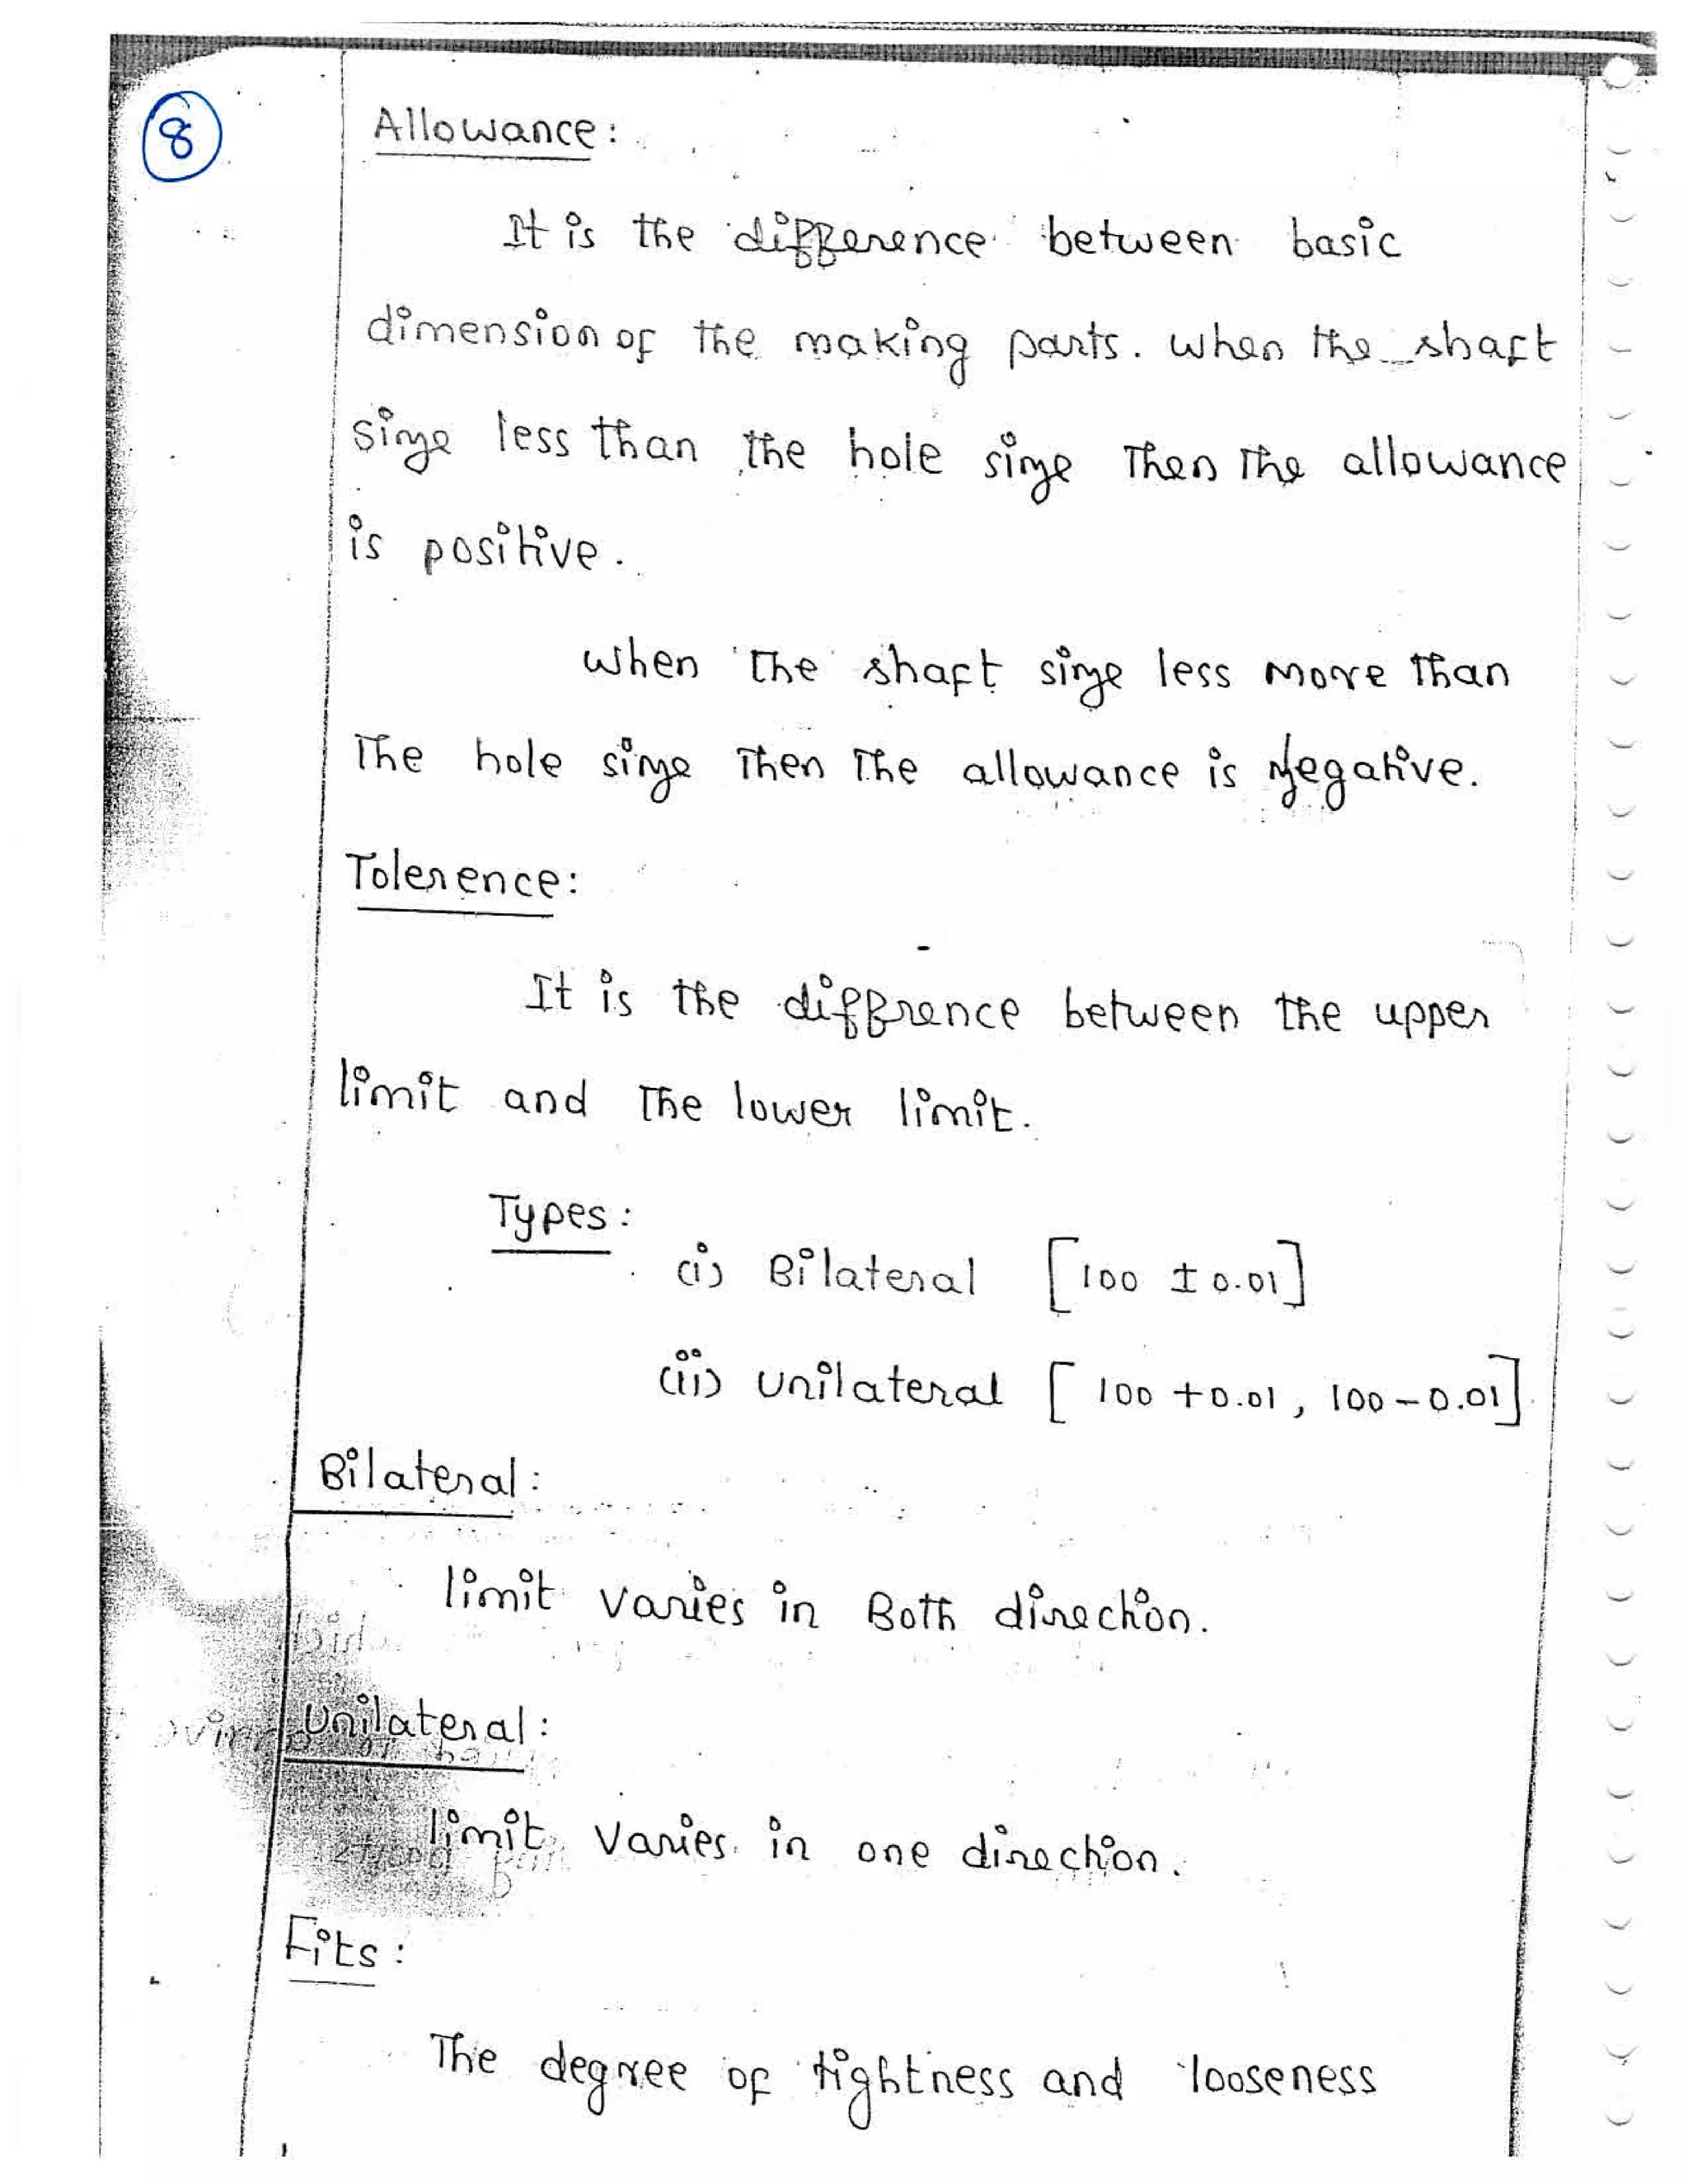 8
Allowance:
It is the difference between basic
dimension of the making parts. when the shaft
size less than the hole size Then The allowance
is positive.
when The shaft size less more Than
The hole size Then The allowance is Negative.
Tolerence:
It is the diffrence between the upper
limit and The lower limit.
Types:
(i) Bilateral [100 ± 0.01]
(ii) unilateral [100 +0.01, 100-0.01]
Bilateral:
limit varies in Both direction.
Unilateral:
limit varies in one direction.
Fits:
The degree of tightness and looseness